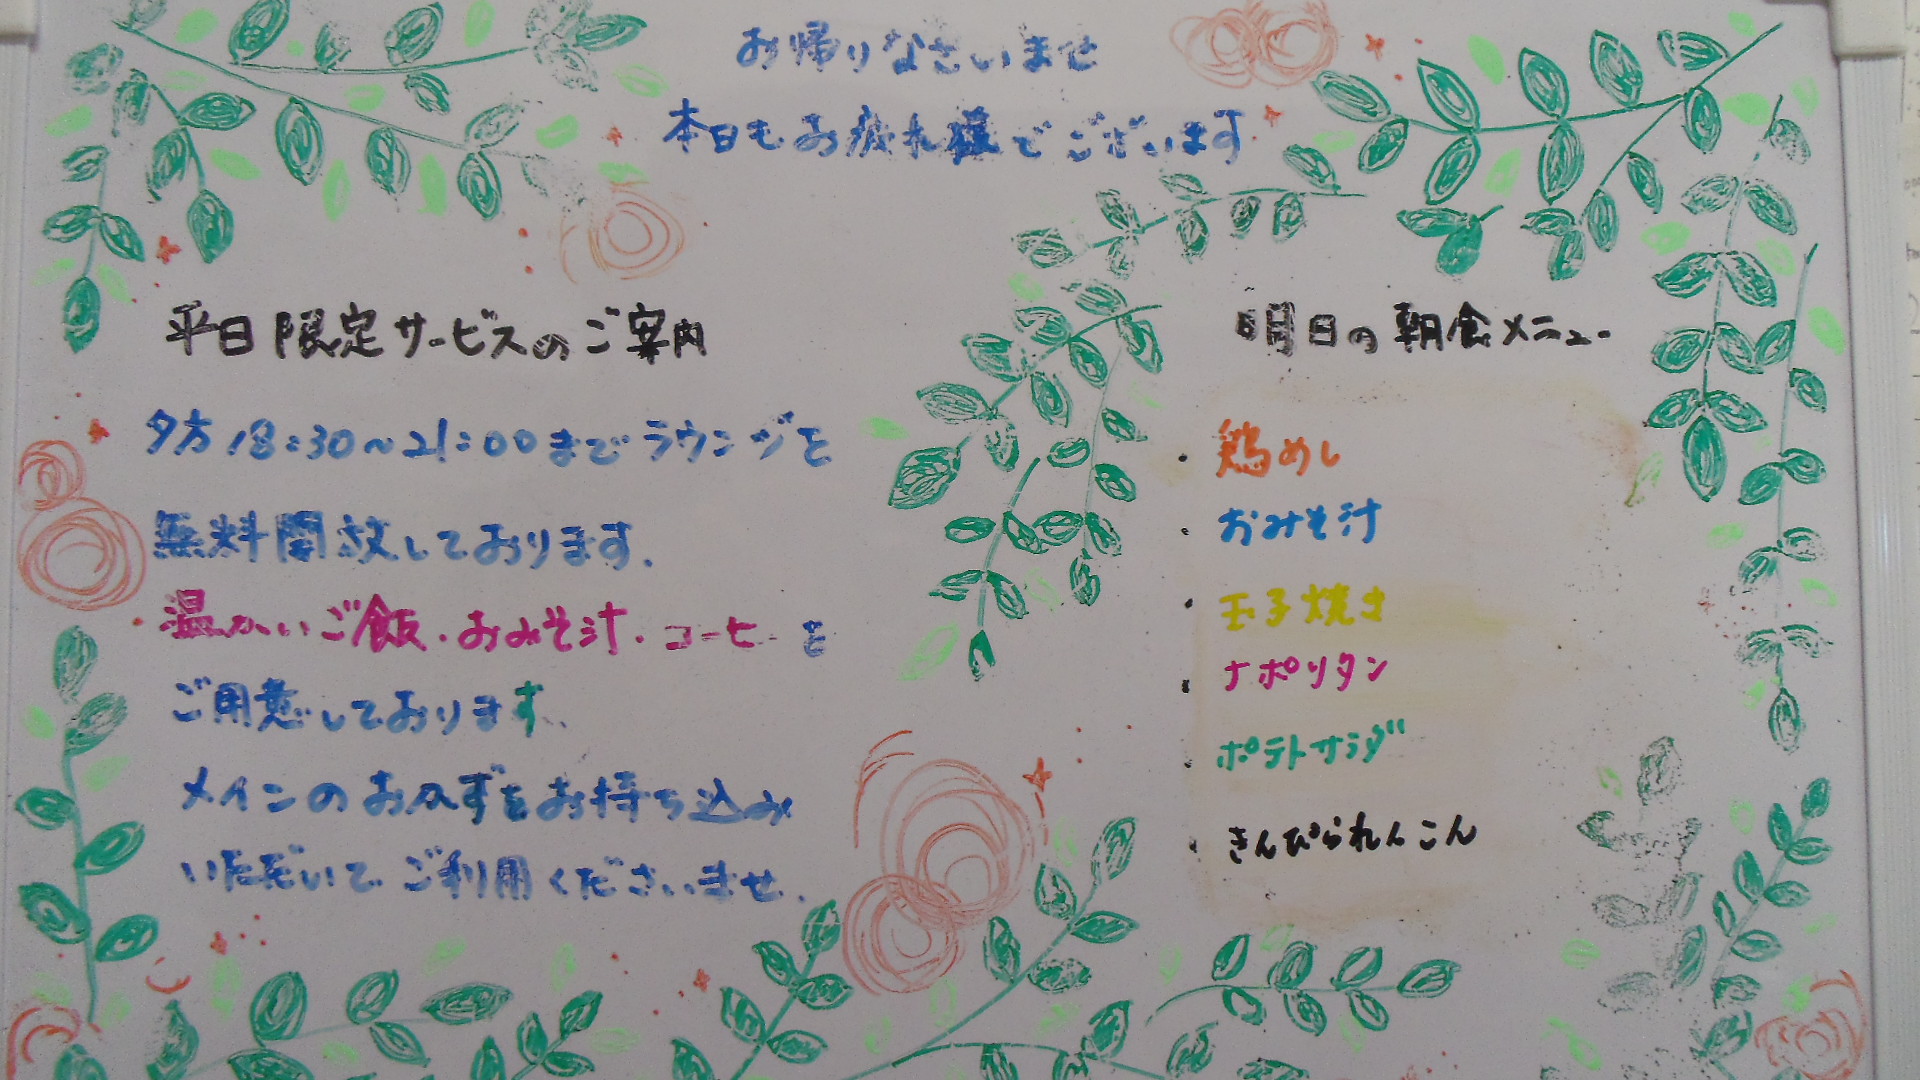 お帰りなさいませ
本日もお疲れ様でございます
平日限定サービスのご案内
夕方18:30〜21:00までラウンジを
無料開放しております.
温かいご飯・おみそ汁・コーヒーを
ご用意しております、
メインのおかずをお持ち込み
いただいてご利用くださいませ.
明日の朝食メニュー
・鶏めし
・おみそ汁
・玉子焼き
・ナポリタン
・ポテトサラダ
・きんぴられんこん